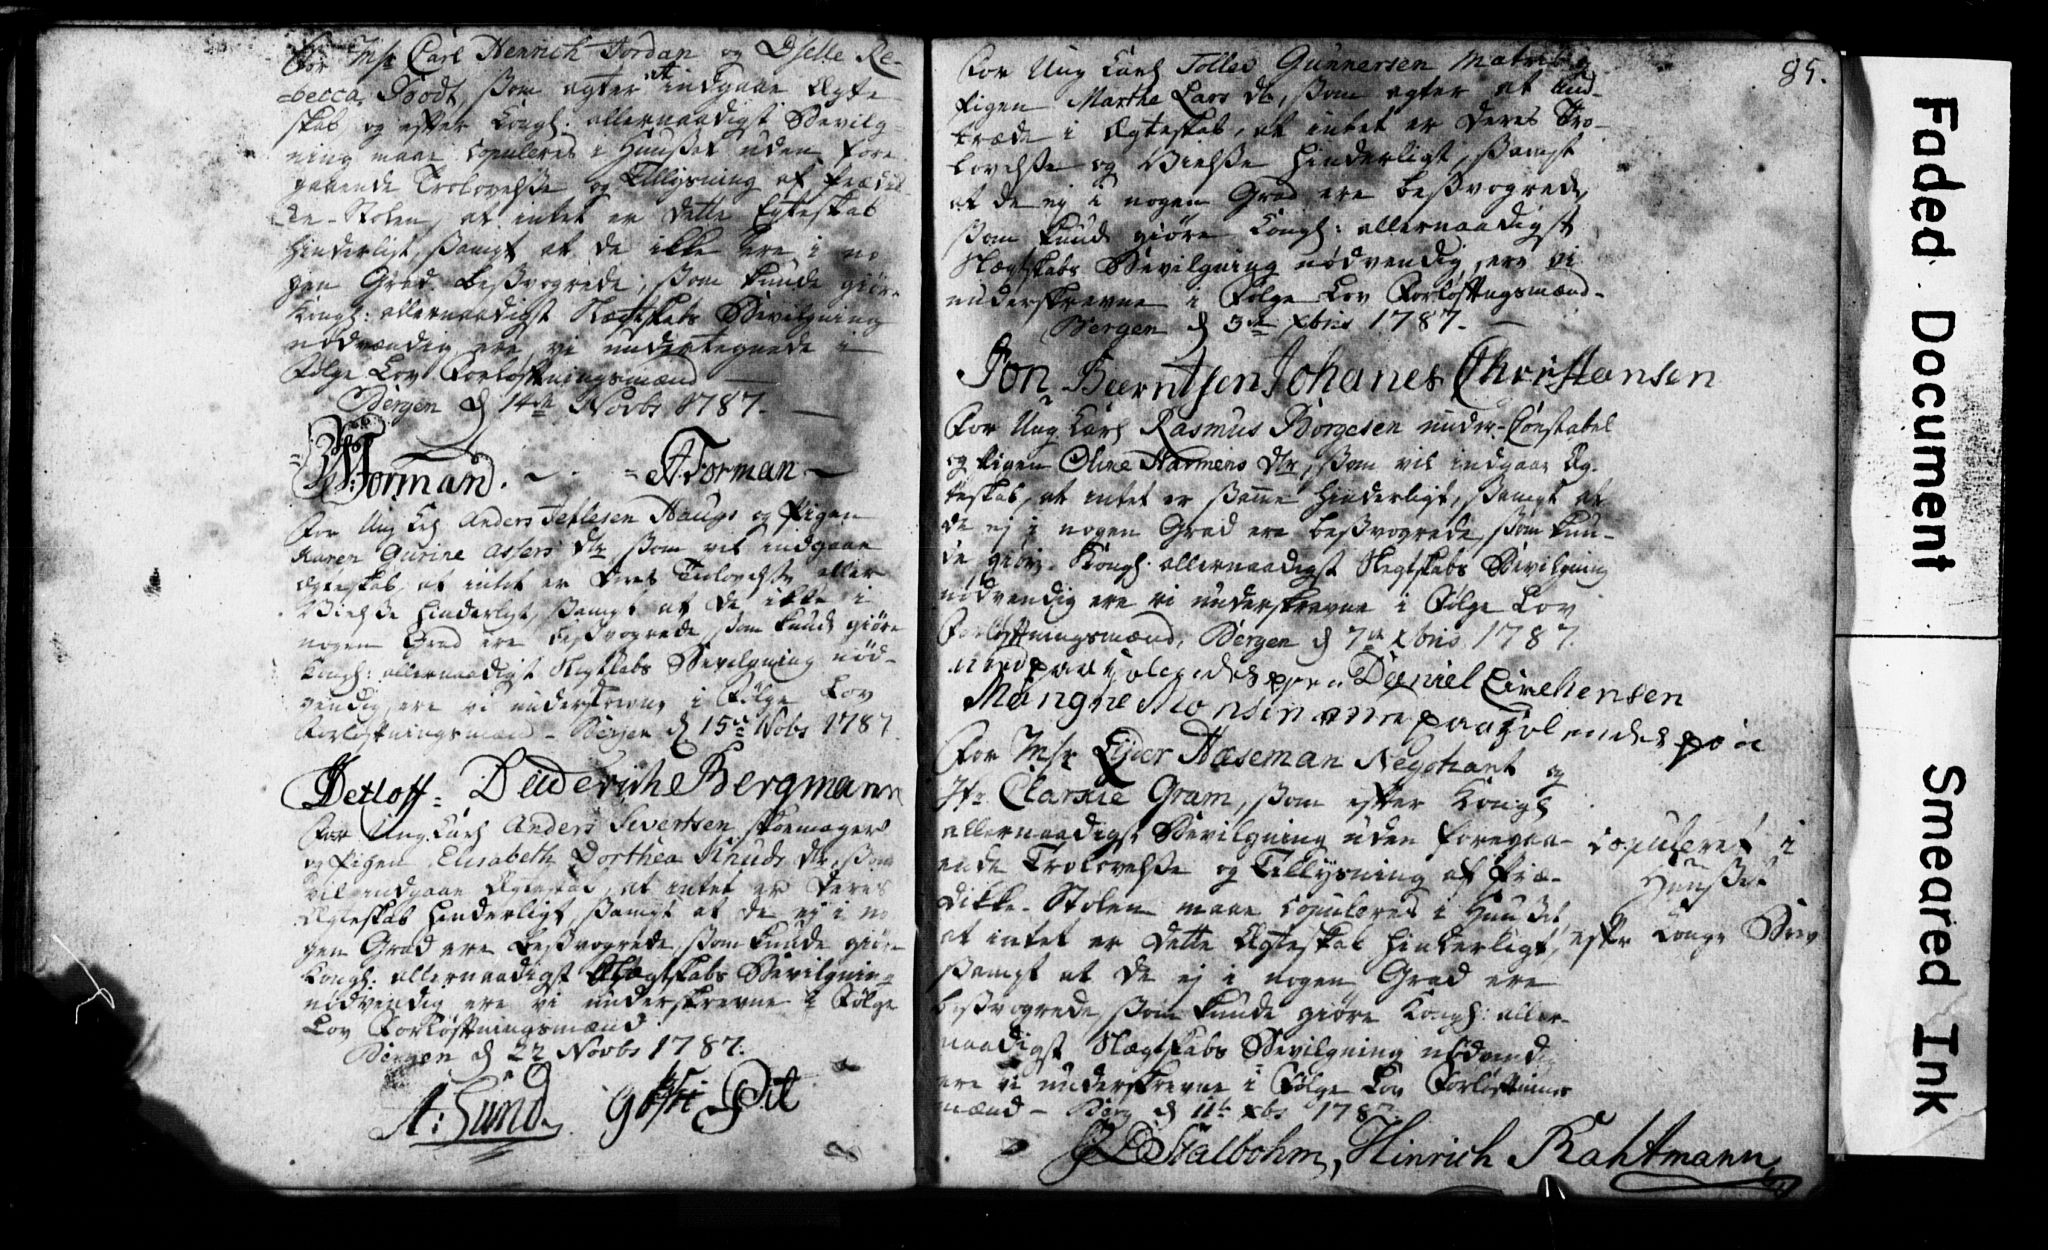 For Mr Carl Henrich Jordan og Dslle Re-
becca Brodt, ßom agter at indgaae Ægte
skab og efter Kongl: allernaadigst Bevilg
ning maae copuleres i Huuset uden fore
gaaende Trolovelße og Tillysning af Prædi
ke-Stolen, at intet er dette Egteskab
hinderligt, ßampt at de ikke ere i no
gen Grad beßvogrede, ßom kunde giøre
Kongl: allernaadigst Slægtskabs Bevilgning
nødvendig ere vi undertegnede i
Følge Lov Forløftningsmænd
Bergen d 14de Novbr 1787.
Forman. A Forman
For Ung Karl Anders Tetlesen Haugs og Pigen
Karen Gurine Assers dtr ßom vil indgaae
Egteskab, at intet er deres Trolovelße eller
Vielße hinderligt, ßampt at de ikke i
nogen Grad ere beßvogrede, ßom kunde giøre
Kongl: allernaadigst Slegtskabs Bevilgning nød-
vendig, ere vi underskrevne i Følge Lov
Forløftningsmænd - Bergen d 15de Nobr 1787.
Detloff = Diderich Bergmann
For Ung Karl Anders Sivertsen skoemager
og Pigen Elisabeth Dorthea Knuds dtr, ßom
vil indgaae Egteskab, at intet er deres
Ægteskab hinderligt, ßampt at de ej i no
gen Grad ere beßvogrede, ßom kunde giøre
Kongl: allernaadigst Slægtskabs Bevilgning
nødvendig ere vi underskrevne i Følge
Lov Forløftningsmænd
Bergen d 22 Novbr 1787.
A: Sund
85.
For Ung Karl Tollev Gunnersen Matros og
Pigen Marthe Lars dtr, ßom agter at ind-
træde i Ægteskab, at intet er deres Tro-
lovelße og Vielße hinderligt, ßampt
at de ej i nogen Grad ere beßvogrede,
ßom kunde giøre Kongl: allernaadigst
Slægtskabs Bevilgning nødvendig, ere vi
underskrevne i Følge Lov Forløftngsmænd-
Bergen d 3de Xbris 1787.
Jon Beerntsen Johanes Christansen
For Ung Karl Rasmus Børgesen under-Constabel
og Pigen Oline Harmens dtr, ßom vil indgaae Æg-
teskab, at intet er ßamme hinderligt, ßampt at
de ej i nogen Grad ere beßvogrede ßom kun-
de giøre Kongl: allernaadigst Slegtskabs Bevilgning
nødvendig ere vi underskrevne i Følge Lov
Forløftningsmænd, Bergen d 7de Xbris 1787.
med paaholendes pen Daniel
Mangne Monsen med paaholendes pen
For Mr Eyler Haseman Negotiant og
Jfr Clarnie Gram, ßom efter Kongl
allernaadigst Bevilgning uden foregaa-
ende Trolovelße og Tillysning af Præ-
dikke-Stolen maae copuleres i Huuset
at intet er dette Ægteskab hinderligt,
ßampt at de ej i nogen Grad ere
beßvogrede, ßom kunde giøre Kongl: aller-
naadigst Slægtskabs Bevilgning nødvendig
ere vi underskrevne i Følge Lov Forløftnings
mænd - Berg d 11te Xbr 1787
Stalbohm, Hinrich Kahtmann
copuleret i
Huuset
efter Konge Brev
Faded Document
Smeared Ink